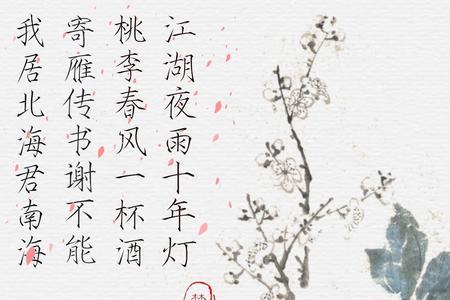 江湖夜雨十年灯
桃李春风一杯酒
寄雁传书谢不能
我居北海君南海